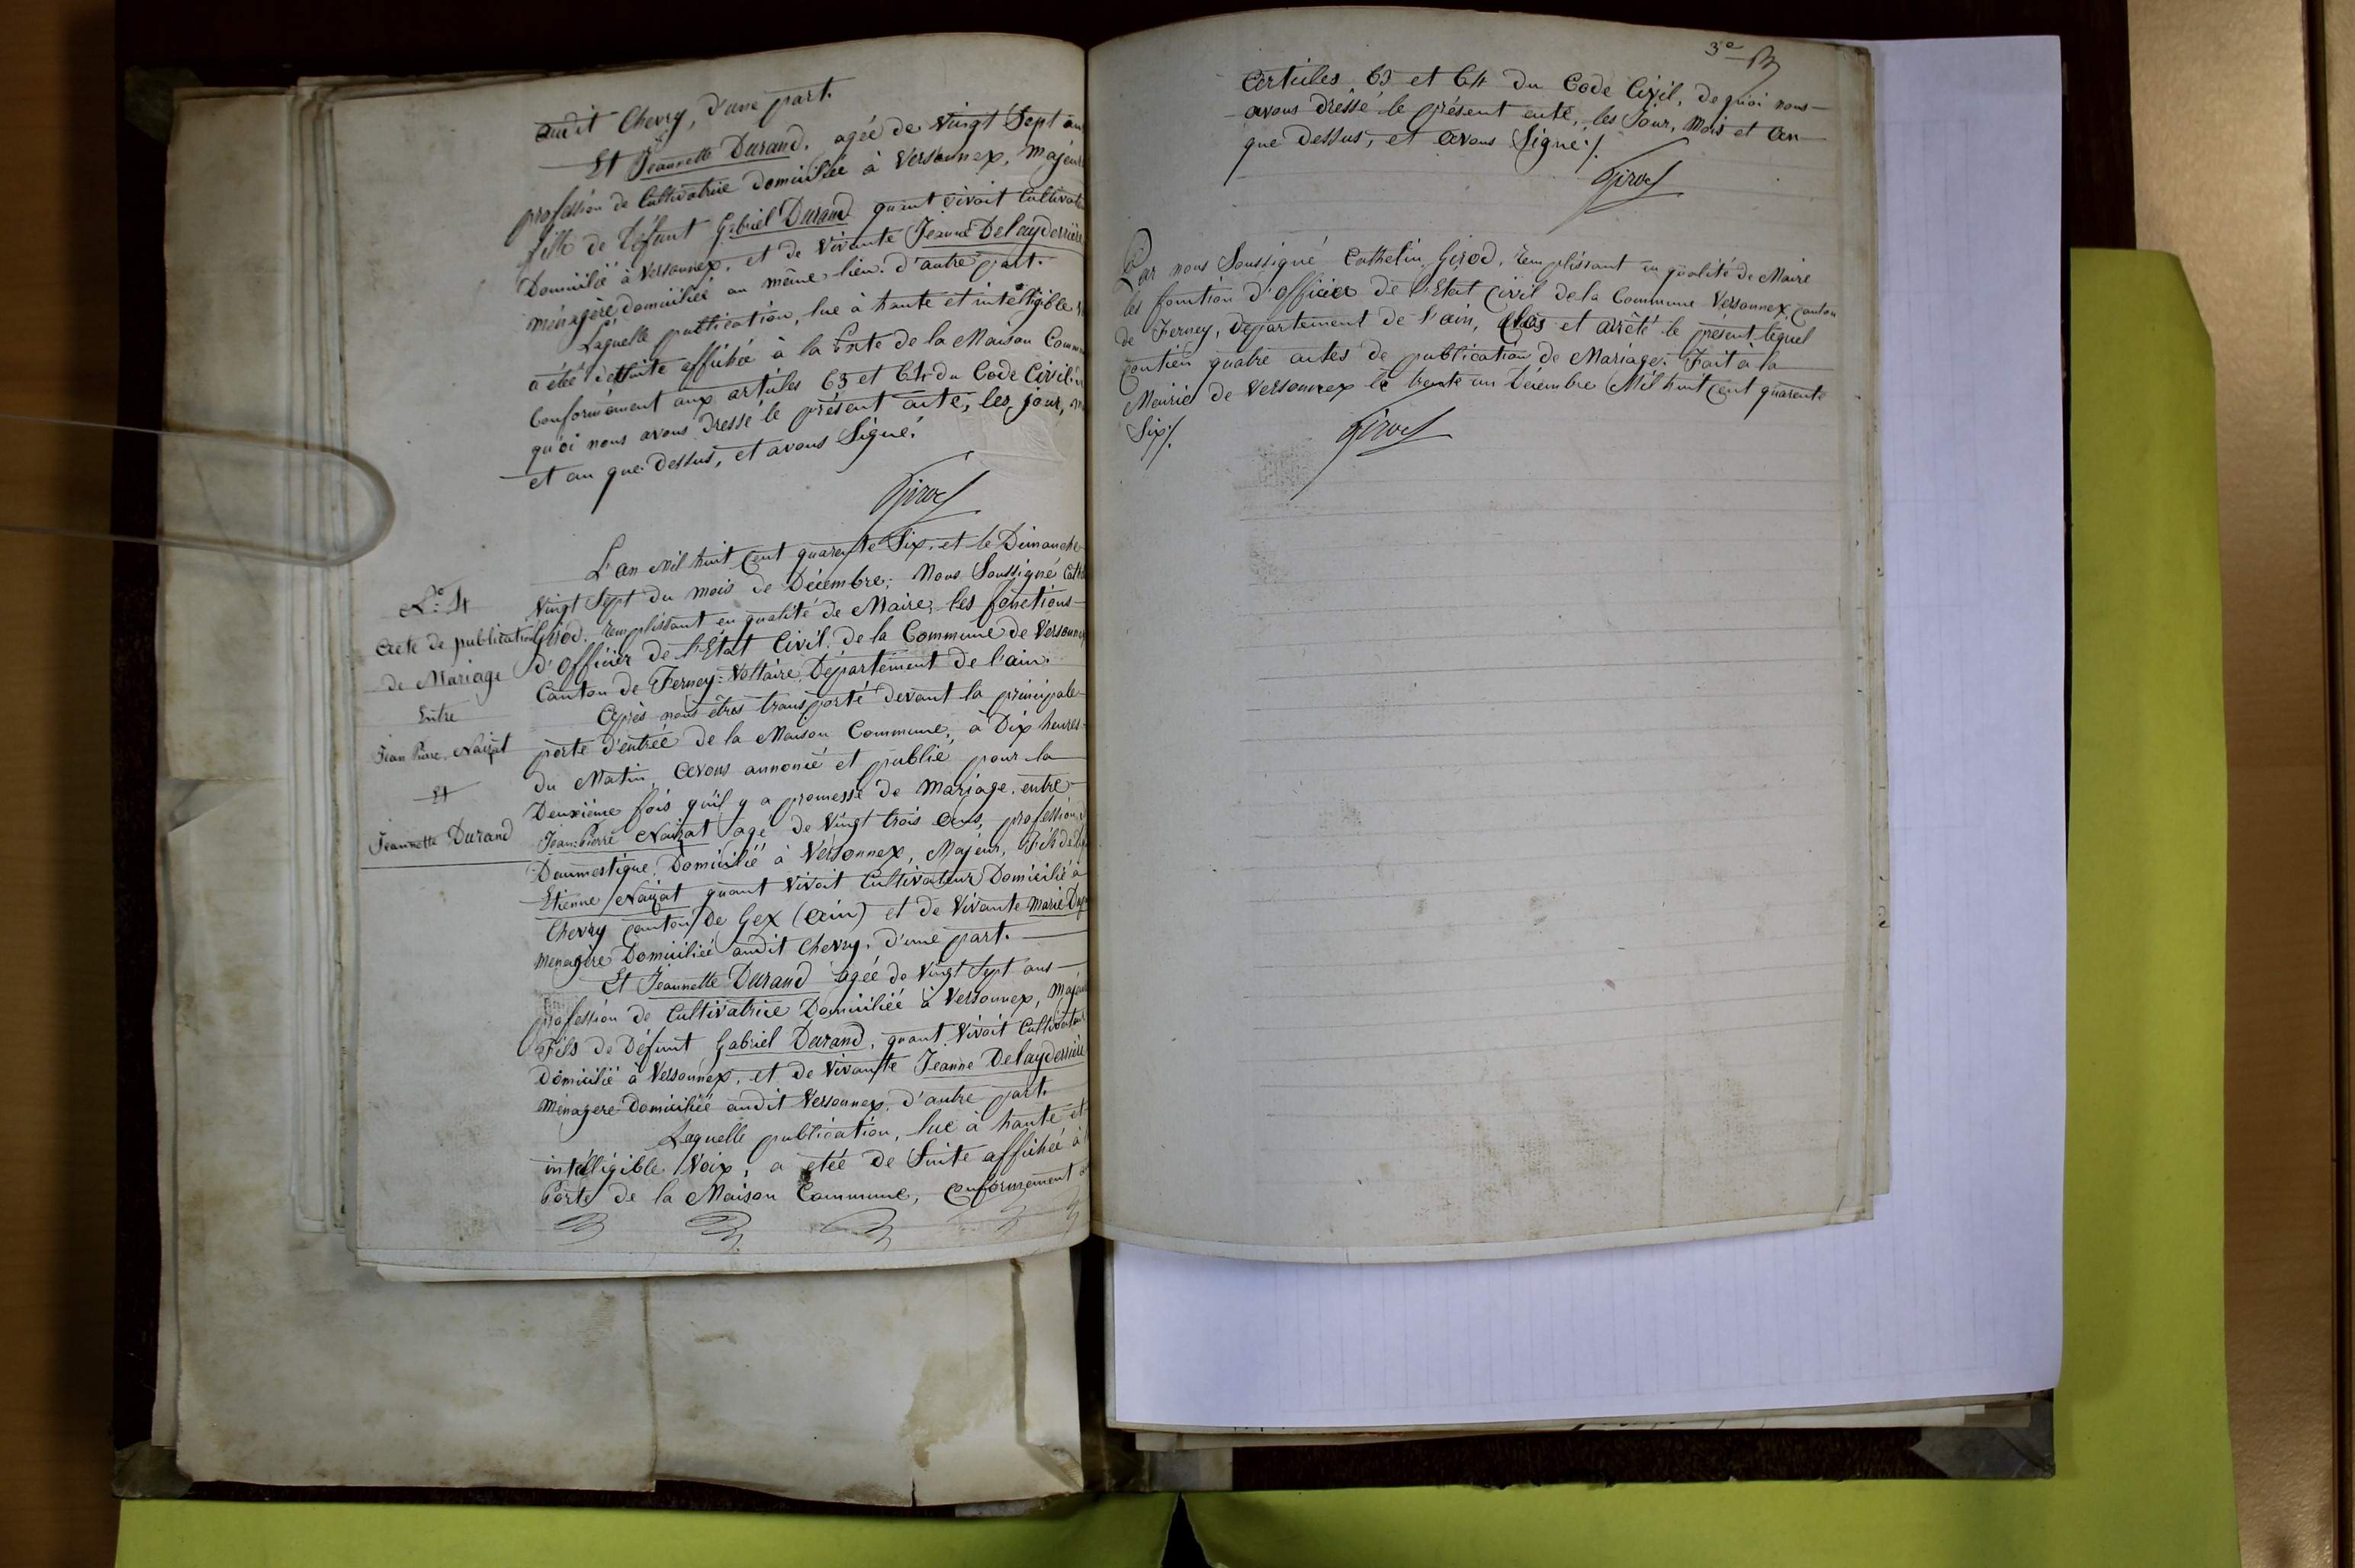 audit Chevry, d'une part.
Et Jeannette Durand, agée de Vingt Sept ans
profession de Cultivatrice domiciliée à Versonnex, Majeure
fille de défunt Gabriel Durand quant vivait Cultivat
Domicilié à Versonnex, et de Vivante Jeanne Delayderrière
ménagère domiciliée au même lieu. d'autre part.
Laquelle publication, lue à haute et intelligible
a été de suite affichée à la Porte de la Maison Comm
Conformément aux articles 63 et 64 du Code Civil.
quoi nous avons dressé le présent acte, les jour, m
et an que dessus, et avons Signé.
Girod
N.º 4
Acte de publication
de Mariage
Entre
Jean Pierre Naizat
Et
Jeannette Durand
L'an Mil huit Cent quarante Six, et le Dimanche
Vingt Sept du mois de Décembre; Nous Soussigné Cath
Girod. remplissant en qualité de Maire, les fonctions
d'Officier de l'Etat Civil, de la Commune de Versonnex
Canton de Ferney-Voltaire, Département de l'ain.
Après nous êtres transporté devant la principale
porte d'entrée de la Maison Commune, à Dix heures
du Matin, Avons annoncé et publié pour la
Deuxième fois qu'il y a promesse de Mariage, entre
Jean-Pierre Naizat agé de Vingt trois Ans, profession
Daumestique, Domicilié à Versonnex, Majeur, Fils de
Etienne Naizat quant Vivait Cultivateur Domicilié à
Chevry canton de Gex (Ain) et de Vivante Marie
Menagère Domiciliée audit Chevry. d'une part.
Et Jeannette Durand agée de Vingt Sept ans
profession de Cultivatrice Domiciliée à Versonnex, Maje
Fils de Défunt Gabriel Durand, quant Vivait Cultivateur
domicilié à Versonnex, et de Vivante Jeanne Delayderrière
Ménagere domiciliée audit Versonnex, d'autre part.
Laquelle publication, lue à haute et
intelligible Voix, a etée de Suite affichée à
Porte de la Maison Commune, Conformement
3e
Articles 63 et 64 du Code Civil, de quoi nous
avons dressé le présent acte, les Jour, Mois et An
que dessus, et Avons Signé ./.
Girod
Par nous Soussigné Cathelin Girod, remplissant en qualité de Maire
les fonction d'Officier de l'Etat Civil de la Commune Versonnex, canton
de Ferney, département de l'ain, Clos et arrêté le présent lequel
Contien quatre actes de publication de Mariage. Fait à la
Meirie de Versonnex le trente un Décembre Mil huit Cent quarente
Six ./.
Girod